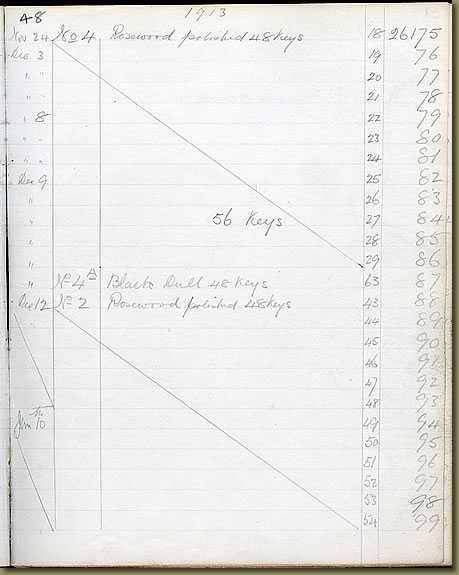 48
1913
Nov 24 No 4 Rosewood polished 48 Keys 18 26175
Dec 3 19 76
" " 20 77
" " 21 78
" 8 22 79
" " 23 80
" " 24 81
Dec 9 25 82
" 26 83
" 56 Keys 27 84
" 28 85
" 29 86
" No 4A Black Dull 48 Keys 63 87
Dec 12 No 2 Rosewood polished 48 Keys 43 88
" 44 89
45 90
46 91
47 92
48 93
Jan 10 49 94
50 95
51 96
52 97
53 98
54 99